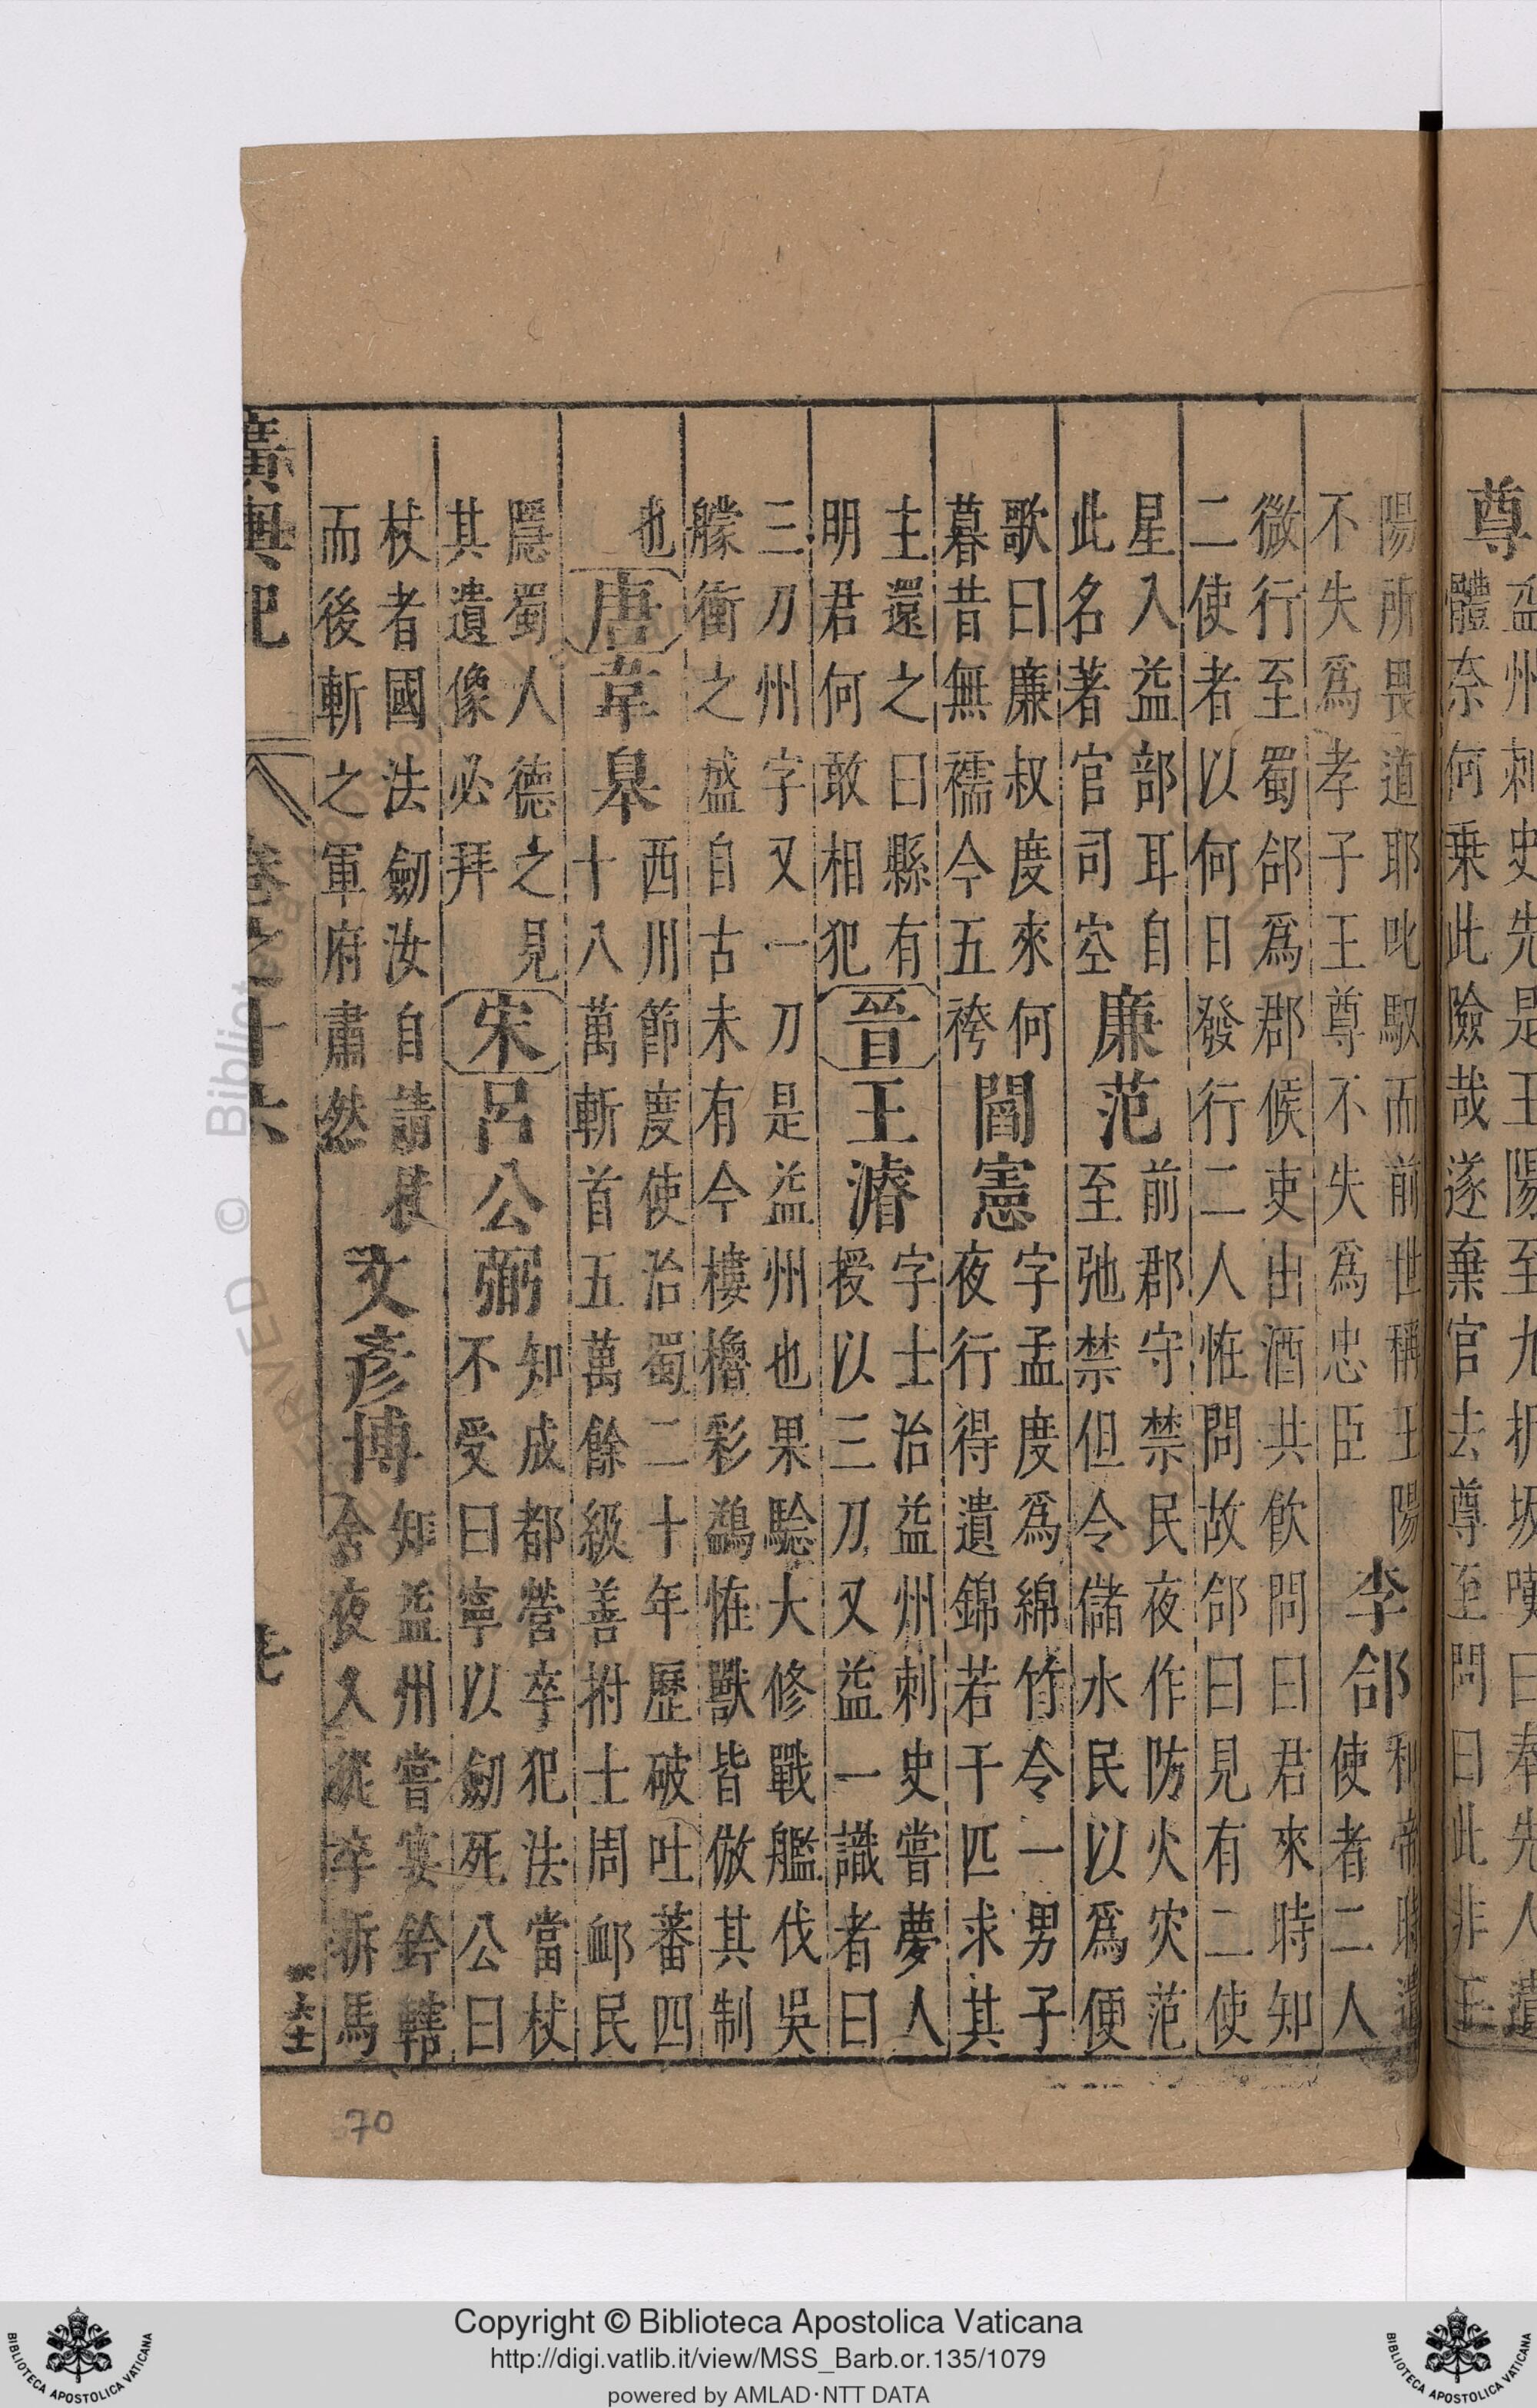 尊
益州刺史先是王陽至九折坂嘆曰奉先人遺
體奈何乗此險哉遂棄官去尊至問曰此非王
陽所畏道耶叱馭而前世稱王陽
不失爲孝子王尊不失爲忠臣
李郃
和帝時遣
使者二人
微行至蜀郃爲郡候吏由酒共飲問曰君來時知
二使者以何日發行二人恠問故郃曰見有二使
星入益部耳自
此名著官司空
廉范
前郡守禁民夜作防火灾范
至弛禁但令儲水民以爲便
歌曰廉叔度來何
暮昔無襦今五袴
閻憲
字孟度爲綿竹令一男子
夜行得遺錦若干匹求其
主還之曰縣有
明君何敢相犯
晉
王濬
字士治益州刺史嘗夢人
授以三刀又益一識者曰
三刀州字又一刀是益州也果驗大修戰艦伐吳
艨衝之盛自古未有今樓櫓彩鷁恠獸皆倣其制
也
唐
韋臯
西川節度使治蜀二十年歷破吐蕃四
十八萬斬首五萬餘級善拊士周䘏民
隱蜀人德之見
其遺像必拜
宋
呂公弼
知成都營卒犯法當杖
不受曰寧以劒死公曰
杖者國法劒汝自請杖
而後斬之軍府肅然
文彥博
知益州嘗宴鈐轄
舍夜久從卒拆馬
廣輿記
卷之十六